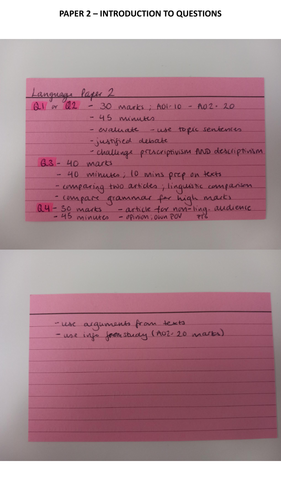 PAPER 2 – INTRODUCTION TO QUESTIONS
Language Paper 2
Q1 or Q2 - 30 marks ; AO1-10 - AO2-20
- 45 minutes
- evaluate - use topic sentences
- justified debate
- challenge prescriptivism AND descriptivism
Q3 - 40 marks
- 40 minutes, 10 mins prep on texts
- comparing two articles; linguistic comparison
- compare grammar for high marks
Q4 - 30 marks - article for non-ling. audience
- 45 minutes - opinion, own POV
- use arguments from texts
- use info from study (AO2- 20 marks)